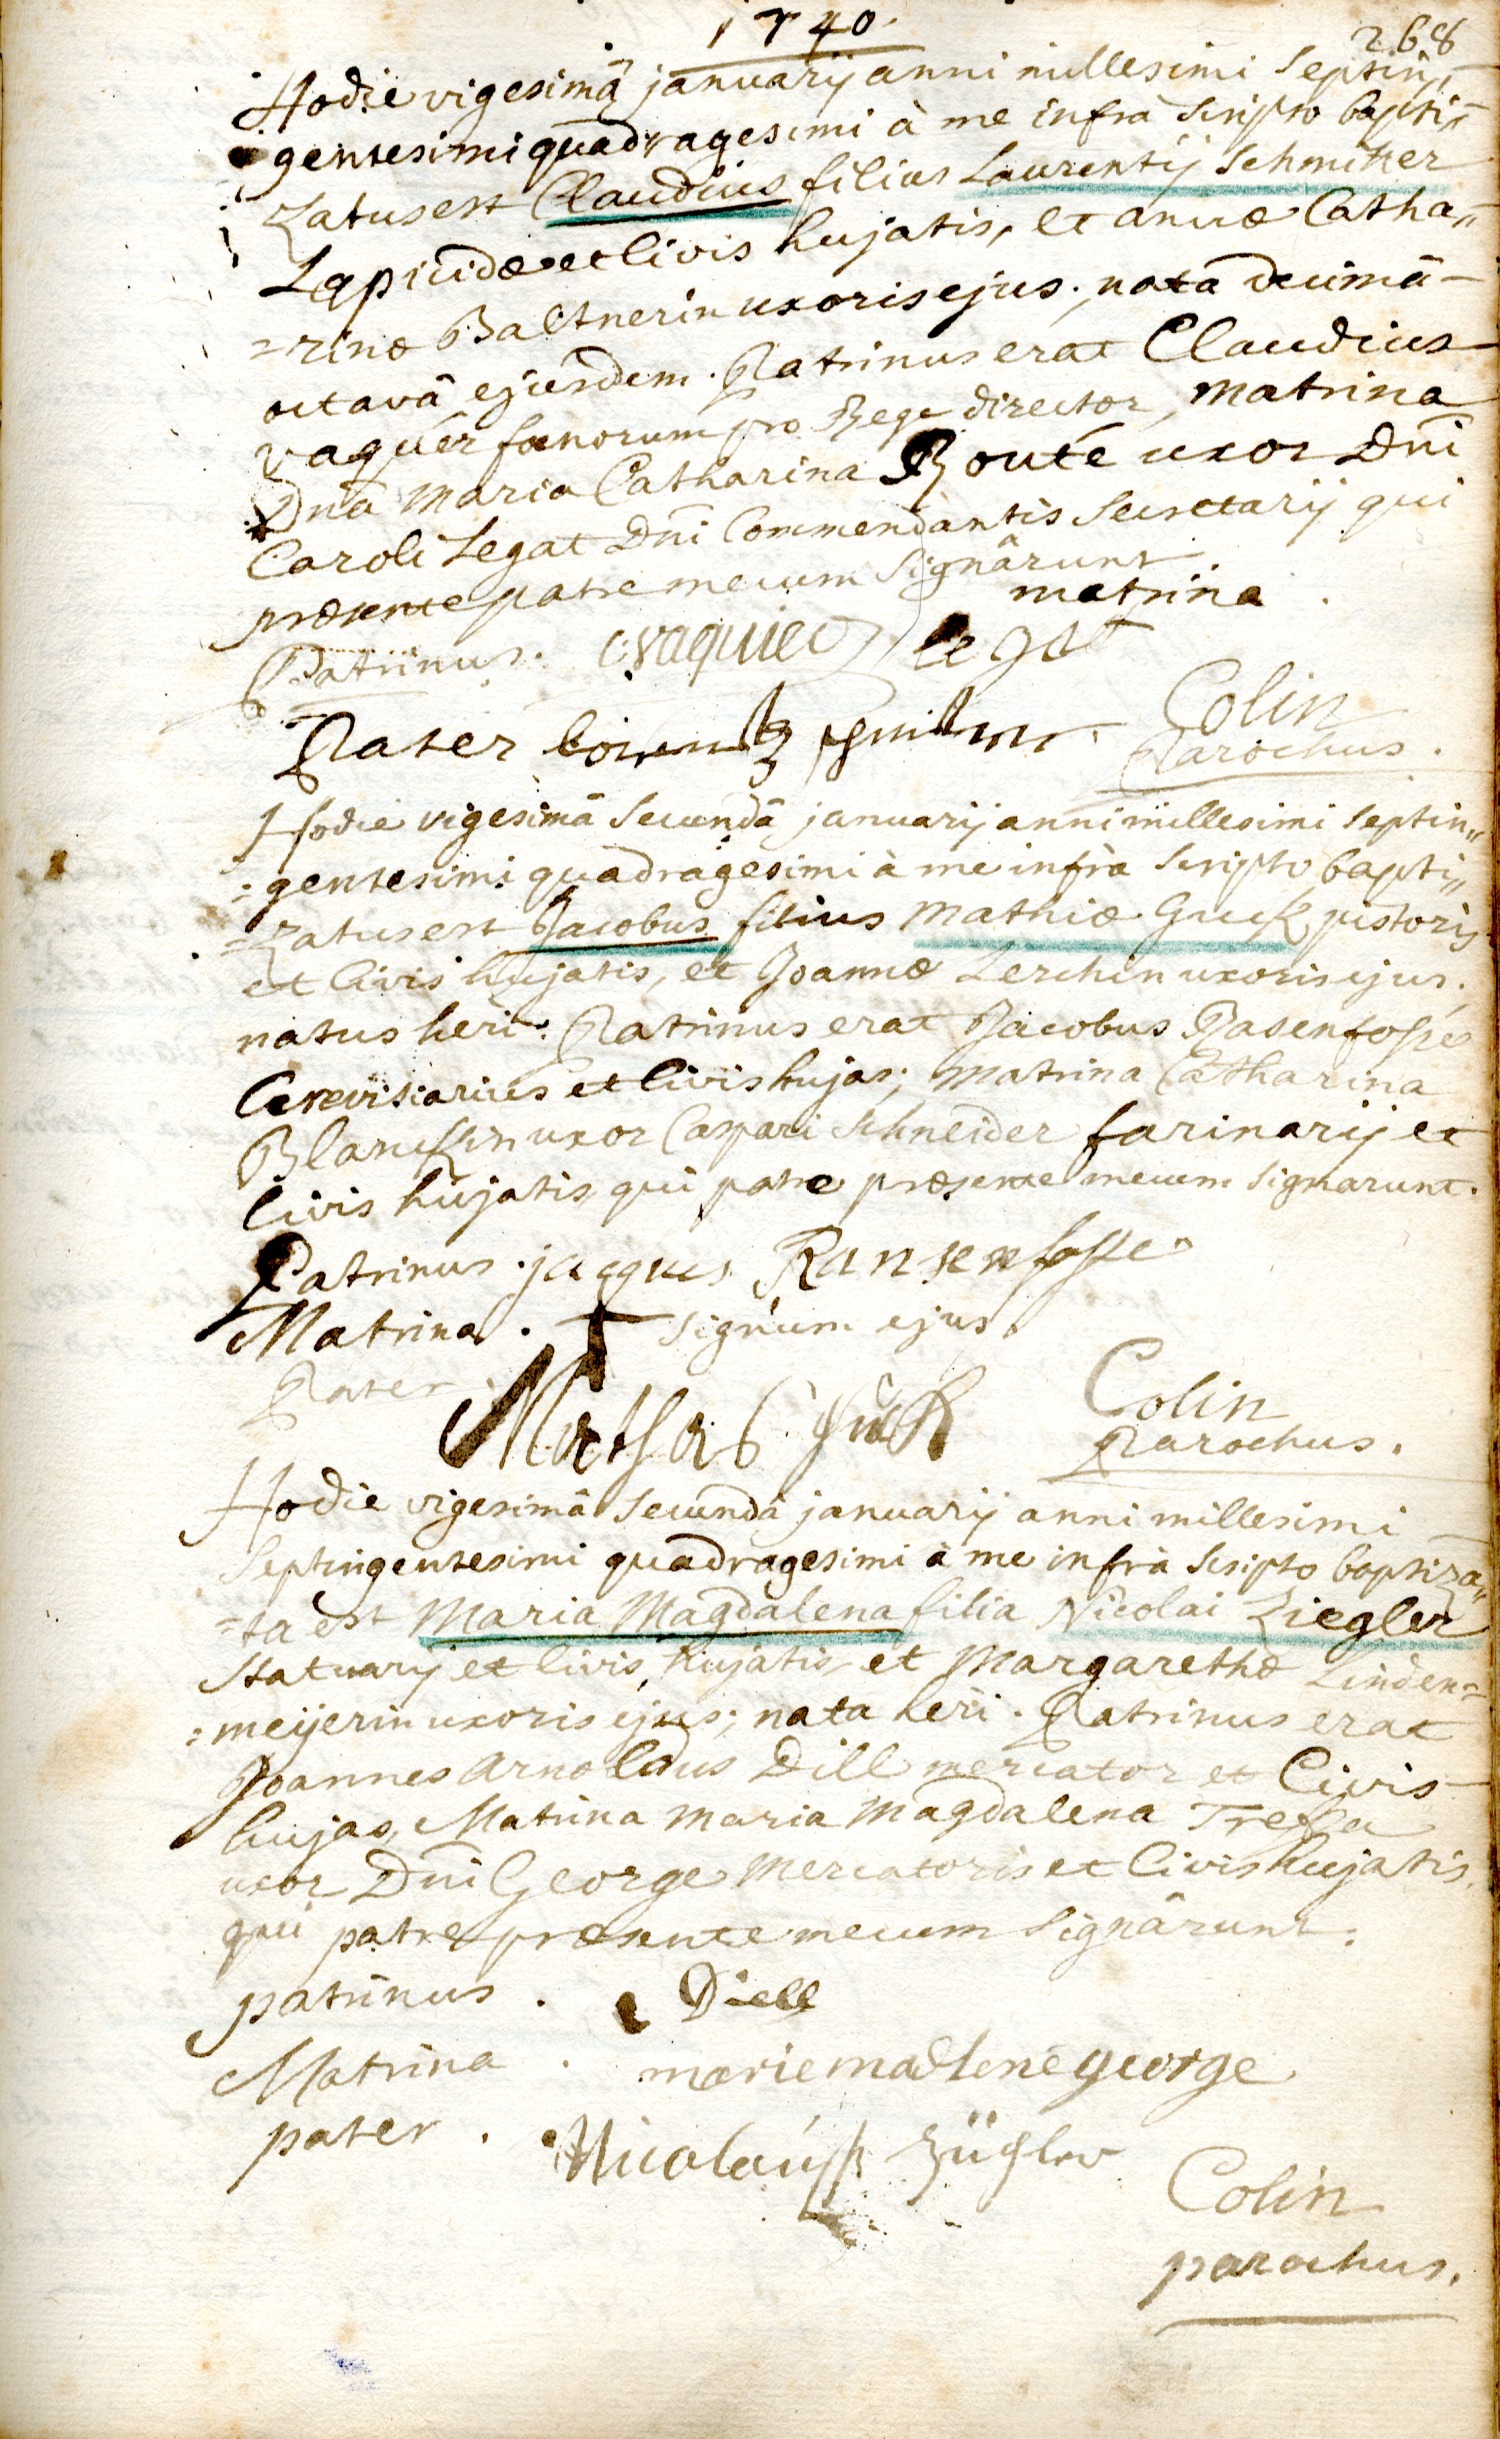 1740.
268
Hodie vigesimâ januarij anni millesimi Septin„
gentesimi quadragesimi à me infrà Scripto bapti„
zatus est Claudius filius Laurentij Schmitter
Lapicidæ et Civis hujatis, et annæ Catha„
=rinæ Baltnerin uxoris ejus. nata decimâ
octavâ ejusdem. Patrinus erat Claudius
vaquér fœnorum pro Rege director, Matrina
Dna Maria Catharina Routé uxor Dni
Caroli Legat Dni Commendantis Secretarij qui
præsente patre mecum Signârunt
matrina
Patrinus. C vaquiez legat
Pater Lorentz Schmitter
Colin
Parochus.
Hodie vigesimâ Secundâ januarij anni millesimi Septin„
=gentesimi quadragesimi à me infrà Scripto bapti„
=zatus est Jacobus filius Mathiæ Guck pistoris
et Civis hujatis, et Joannæ Lerchin uxoris ejus.
natus heri. Patrinus erat Jacobus Rasenfosse
Cerevisiarius et Civis hujas; Matrina Catharina
uxor Caspari Schneider farinarij et
Civis hujatis, qui patre præsente mecum Signarunt.
Patrinus. jacques Ransenfosse
Matrina. + Signum ejus.
Pater. Mathas Guck
Colin
Parochus.
Hodie vigesimâ Secundâ januarij anni millesimi
Septingentesimi quadragesimi à me infrà Scripto baptiza„
=ta est Maria Magdalena filia Nicolai Ziegler
Statuarij et Civis hujatis et Margarethæ Linden=
=meijerin uxoris ejus; nata heri. Patrinus erat
Joannes Arnoldus Dill mercator et Civis
hujas, Matrina Maria Magdalena
uxor Dni George Mercatoris et Civis hujatis,
qui patre præsente mecum Signârunt.
patrinus. Diell
Matrina. marie madlene george
pater. Nicolauß Zügler
Colin
parochus.